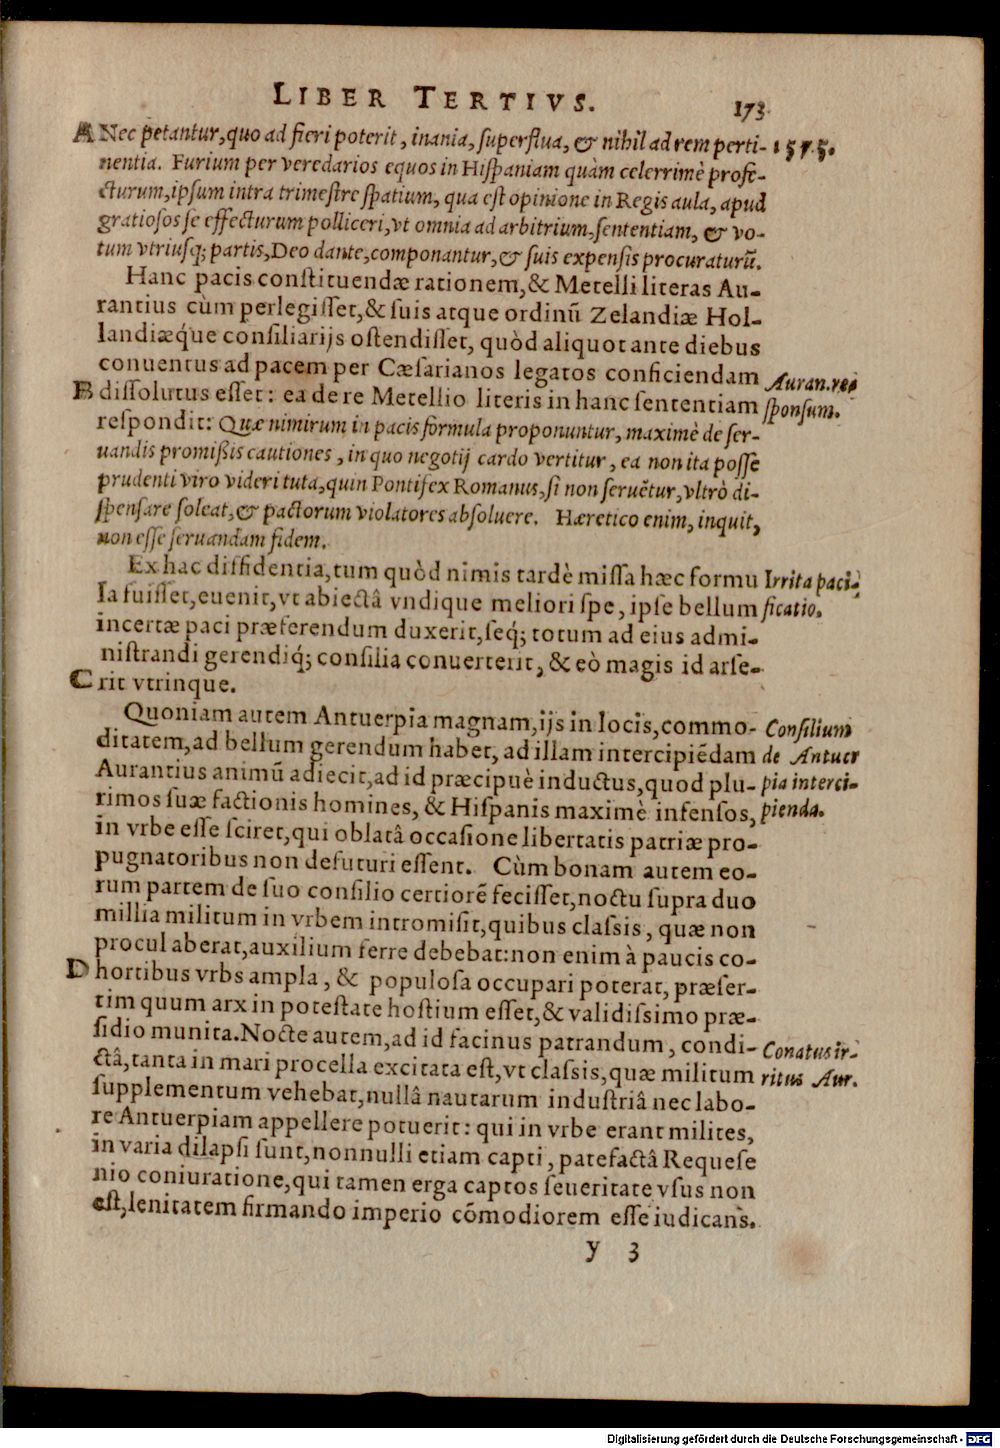 LIBER TERTIVS.
173
A Nec petantur, quo ad fieri poterit, inania, superflua, & nihil ad rem perti- 1575.
nentia. Furium per veredarios equos in Hiſpaniam quàm celerrimè profe-
cturum, ipſum intra trimeſtre ſpatium, qua eſt opinione in Regis aula, apud
gratioſos ſe effecturum polliceri, vt omnia ad arbitrium, ſententiam, & vo-
tum vtriuſq; partis, Deo dante, componantur, & ſuis expenſis procuraturū.
Hanc pacis conſtituendæ rationem, & Metelli literas Au-
rantius cùm perlegiſſet, & ſuis atque ordinū Zelandiæ Hol-
landiæq́ue conſiliarijs oſtendiſſet, quòd aliquot ante diebus
conuentus ad pacem per Cæſarianos legatos conficiendam Auran. re-
B diſſolutus eſſet: ea de re Metellio literis in hanc ſententiam ſponſum.
reſpondit: Quæ nimirum in pacis formula proponuntur, maximè de ſer-
uandis promiſsis cautiones, in quo negotij cardo vertitur, ea non ita poſſe
prudenti viro videri tuta, quin Pontifex Romanus, ſi non ſeruētur, vltrò di-
ſpenſare ſoleat, & pactorum violatores abſoluere. Hæretico enim, inquit,
non eſſe ſeruandam fidem.
Ex hac diffidentia, tum quòd nimis tardè miſſa hæc formu Irrita paci-
la fuiſſet, euenit, vt abiectâ vndique meliori ſpe, ipſe bellum ficatio.
incertæ paci præferendum duxerit, ſeq́; totum ad eius admi-
niſtrandi gerendiq́; conſilia conuerterit, & eò magis id arſe-
C rit vtrinque.
Quoniam autem Antuerpia magnam, ijs in locis, commo- Conſilium
ditatem, ad bellum gerendum habet, ad illam intercipiēdam de Antuer
Aurantius animū adiecit, ad id præcipuè inductus, quod plu- pia interci-
rimos ſuæ factionis homines, & Hiſpanis maximè infenſos, pienda.
in vrbe eſſe ſciret, qui oblatâ occaſione libertatis patriæ pro-
pugnatoribus non defuturi eſſent. Cùm bonam autem eo-
rum partem de ſuo conſilio certiorē feciſſet, noctu ſupra duo
millia militum in vrbem intromiſit, quibus claſsis, quæ non
procul aberat, auxilium ferre debebat: non enim à paucis co-
D hortibus vrbs ampla, & populoſa occupari poterat, præſer-
tim quum arx in poteſtate hoſtium eſſet, & validiſsimo præ-
ſidio munita. Nocte autem, ad id facinus patrandum, condi- Conatus ir-
ctâ, tanta in mari procella excitata eſt, vt claſsis, quæ militum ritus Aur.
ſupplementum vehebat, nullâ nautarum induſtriâ nec labo-
re Antuerpiam appellere potuerit: qui in vrbe erant milites,
in varia dilapſi ſunt, nonnulli etiam capti, patefactâ Requeſe
nio coniuratione, qui tamen erga captos ſeueritate vſus non
eſt, lenitatem firmando imperio cōmodiorem eſſe iudicans.
y 3
Digitalisierung gefördert durch die Deutsche Forschungsgemeinschaft - DFG